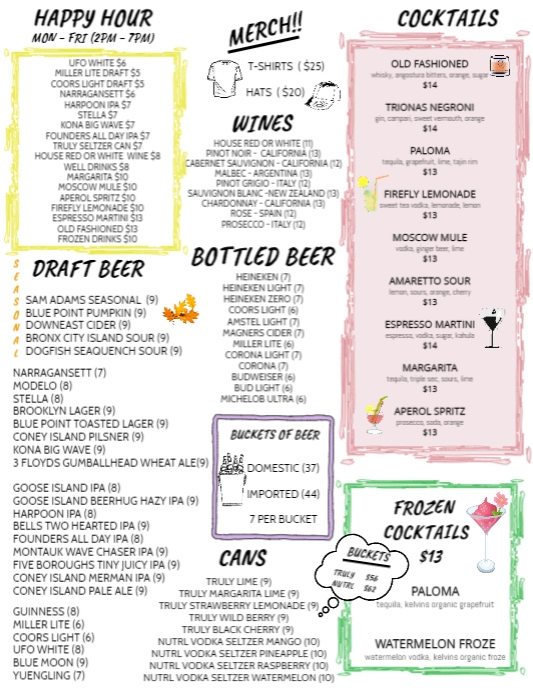 HAPPY HOUR
MON - FRI (2PM - 7PM)
UFO WHITE $6
MILLER LITE DRAFT $5
COORS LIGHT DRAFT $5
NARRAGANSETT $6
HARPOON IPA $7
STELLA $7
KONA BIG WAVE $7
FOUNDERS ALL DAY IPA $7
TRULY SELTZER CAN $7
HOUSE RED OR WHITE WINE $8
WELL DRINKS $8
MARGARITA $10
MOSCOW MULE $10
APEROL SPRITZ $10
FIREFLY LEMONADE $10
ESPRESSO MARTINI $13
OLD FASHIONED $13
FROZEN DRINKS $10
SEASONAL
DRAFT BEER
SAM ADAMS SEASONAL (9)
BLUE POINT PUMPKIN (9)
DOWNEAST CIDER (9)
BRONX CITY ISLAND SOUR (9)
DOGFISH SEAQUENCH SOUR (9)
NARRAGANSETT (7)
MODELO (8)
STELLA (8)
BROOKLYN LAGER (9)
BLUE POINT TOASTED LAGER (9)
CONEY ISLAND PILSNER (9)
KONA BIG WAVE (9)
3 FLOYDS GUMBALLHEAD WHEAT ALE(9)
GOOSE ISLAND IPA (8)
GOOSE ISLAND BEERHUG HAZY IPA (9)
HARPOON IPA (8)
BELLS TWO HEARTED IPA (9)
FOUNDERS ALL DAY IPA (8)
MONTAUK WAVE CHASER IPA (9)
FIVE BOROUGHS TINY JUICY IPA (9)
CONEY ISLAND MERMAN IPA (9)
CONEY ISLAND PALE ALE (9)
GUINNESS (8)
MILLER LITE (6)
COORS LIGHT (6)
UFO WHITE (8)
BLUE MOON (9)
YUENGLING (7)
MERCH!!
T-SHIRTS ($25)
HATS ($20)
WINES
HOUSE RED OR WHITE (11)
PINOT NOIR - CALIFORNIA (13)
CABERNET SAUVIGNON - CALIFORNIA (12)
MALBEC - ARGENTINA (13)
PINOT GRIGIO - ITALY (12)
SAUVIGNON BLANC -NEW ZEALAND (13)
CHARDONNAY - CALIFORNIA (13)
ROSE - SPAIN (12)
PROSECCO - ITALY (12)
BOTTLED BEER
HEINEKEN (7)
HEINEKEN LIGHT (7)
HEINEKEN ZERO (7)
COORS LIGHT (6)
AMSTEL LIGHT (7)
MAGNERS CIDER (7)
MILLER LITE (6)
CORONA LIGHT (7)
CORONA (7)
BUDWEISER (6)
BUD LIGHT (6)
MICHELOB ULTRA (6)
BUCKETS OF BEER
DOMESTIC (37)
IMPORTED (44)
7 PER BUCKET
CANS
TRULY LIME (9)
TRULY MARGARITA LIME (9)
TRULY STRAWBERRY LEMONADE (9)
TRULY WILD BERRY (9)
TRULY BLACK CHERRY (9)
NUTRL VODKA SELTZER MANGO (10)
NUTRL VODKA SELTZER PINEAPPLE (10)
NUTRL VODKA SELTZER RASPBERRY (10)
NUTRL VODKA SELTZER WATERMELON (10)
BUCKETS
TRULY $56
NUTRL $62
COCKTAILS
OLD FASHIONED
whisky, angostura bitters, orange, sugar
$14
TRIONAS NEGRONI
gin, campari, sweet vermouth, orange
$14
PALOMA
tequila, grapefruit, lime, tajin rim
$13
FIREFLY LEMONADE
sweet tea vodka, lemonade, lemon
$13
MOSCOW MULE
vodka, ginger beer, lime
$13
AMARETTO SOUR
lemon, sours, orange, cherry
$13
ESPRESSO MARTINI
espresso, vodka, sugar, kahula
$14
MARGARITA
tequila, triple sec, sours, lime
$13
APEROL SPRITZ
prosecco, soda, orange
$13
FROZEN
COCKTAILS
$13
PALOMA
tequila, kelvins organic grapefruit
WATERMELON FROZE
watermelon vodka, kelvins organic froze